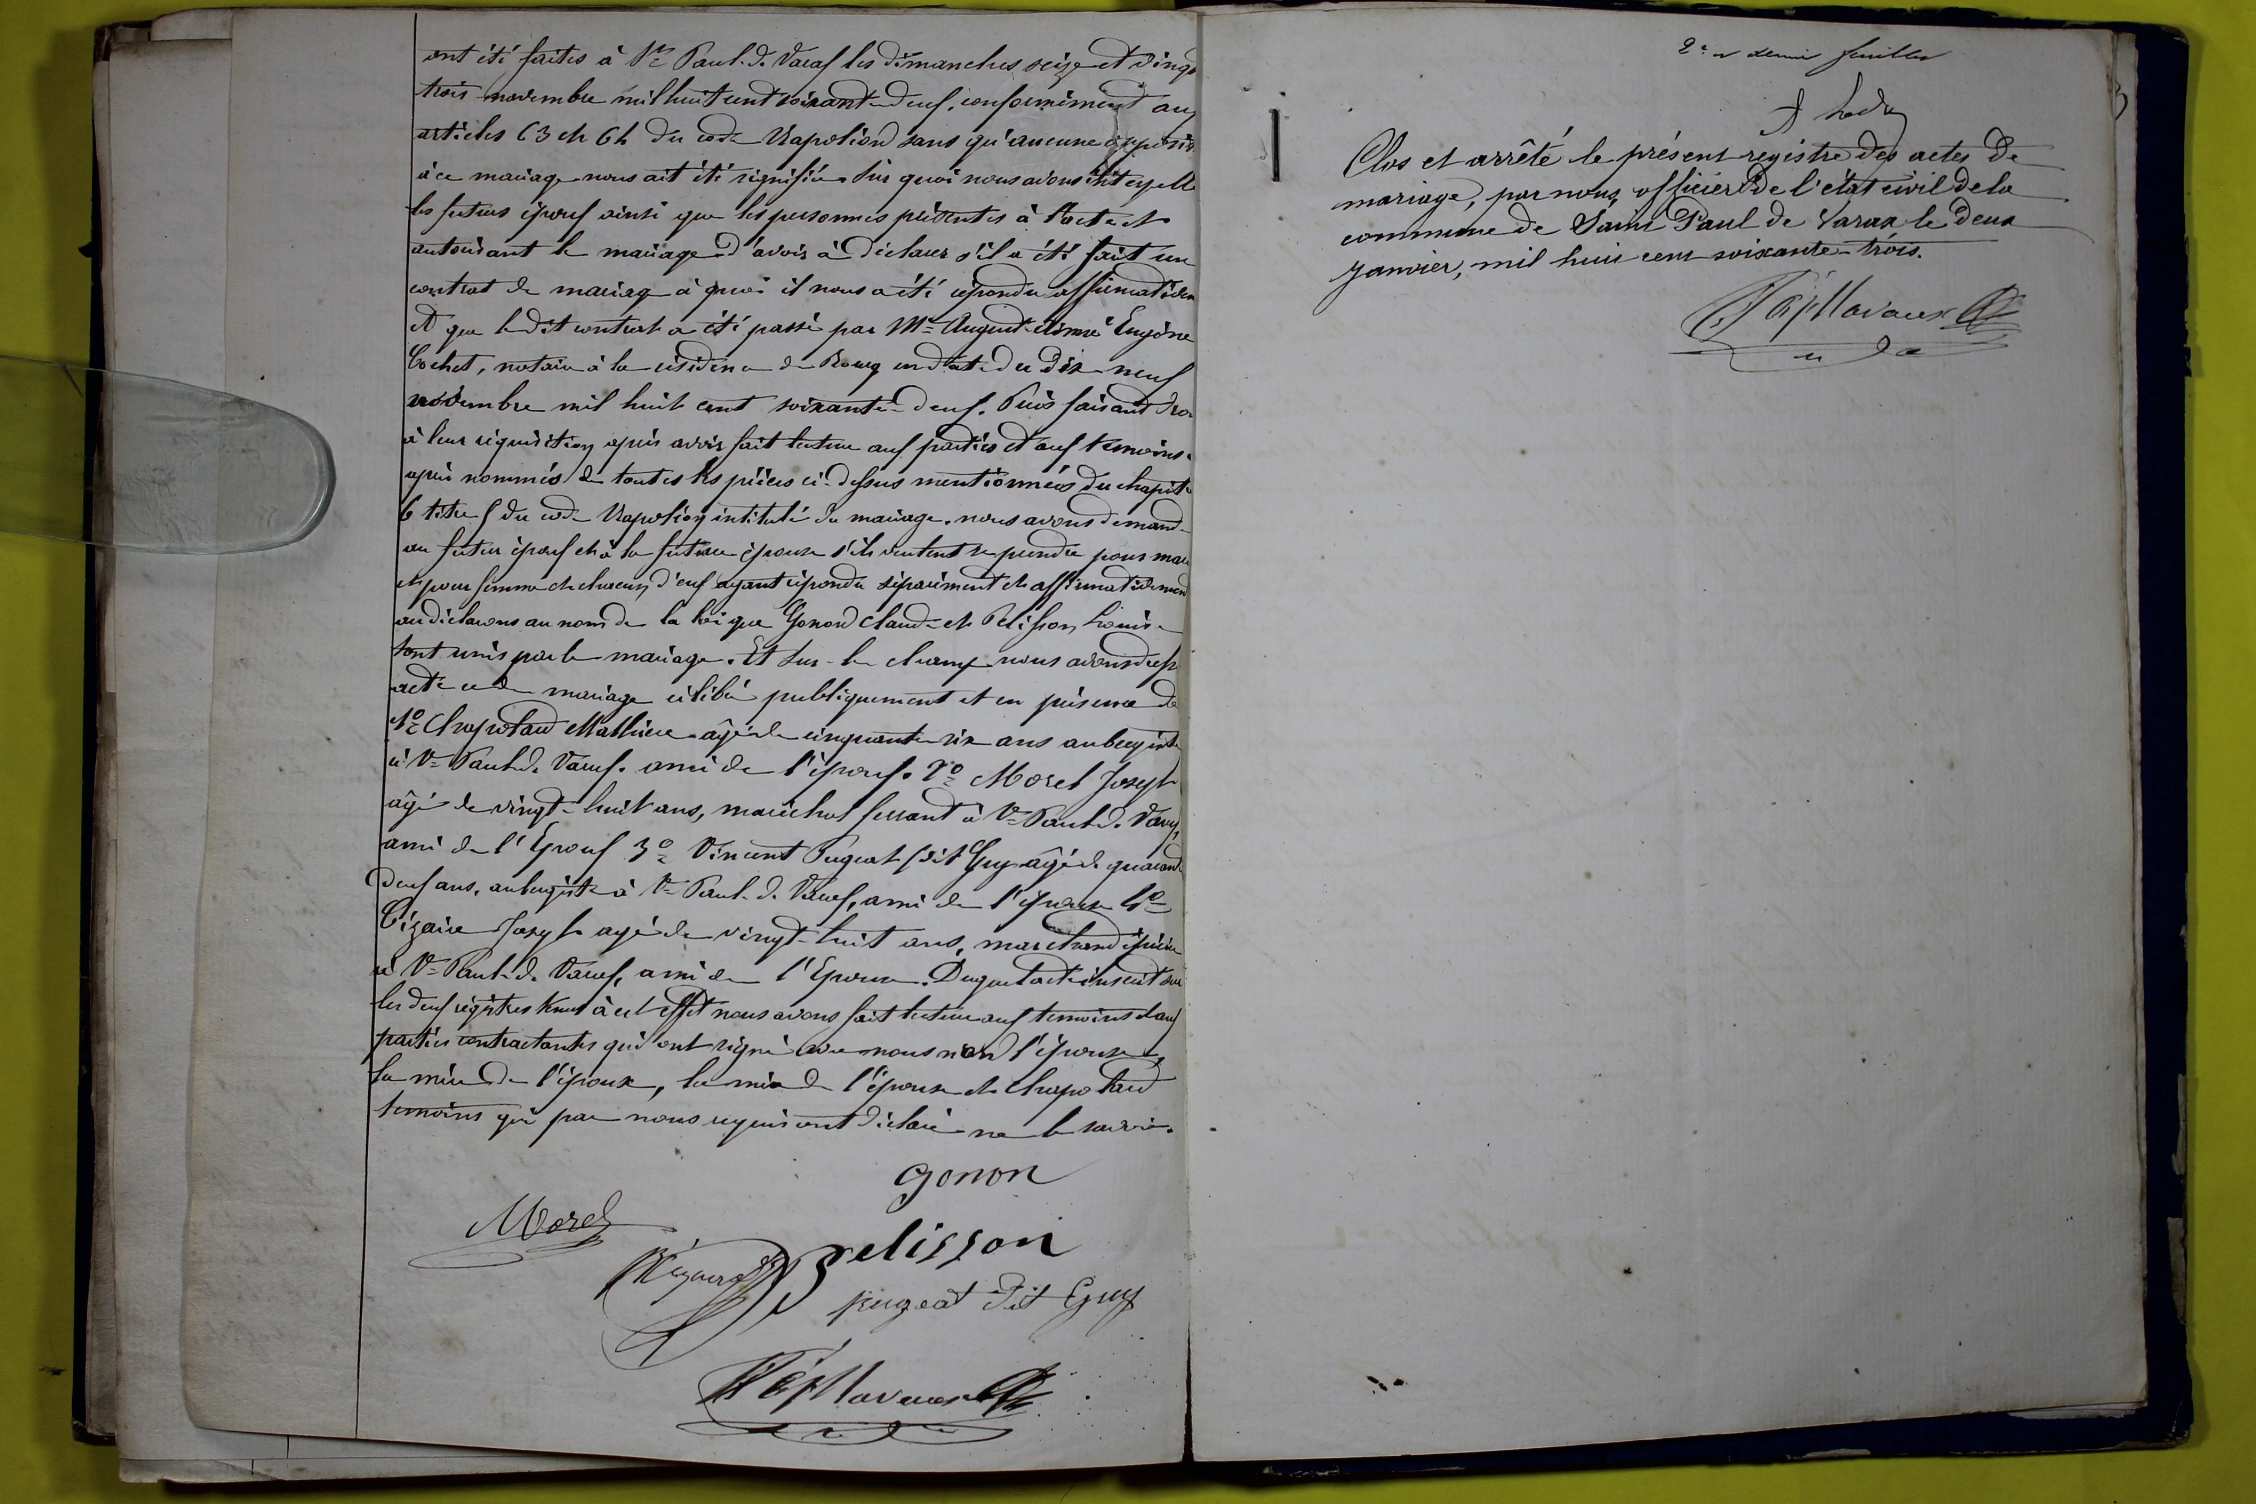 ont été faites à St Paul de Varax les dimanches seize et vingt
trois novembre mil huit cent soixante-deux, conformément aux
articles 63 et 64 du code Napoléon sans qu'aucune opposit
à ce mariage nous ait été signifiée. Sur quoi nous avons interpellé
les futurs époux ainsi que les personnes présentes à l'acte et
autorisant le mariage d'avoir à déclarer s'il a été fait un
contrat de mariage à quoi il nous a été répondu affirmativem
et que le dit contrat a été passé par Me August Aimé Eugène
Cochet, notaire à la résidence de Bourg en date du dix neuf
novembre mil huit cent soixante-deux. Puis faisant dro
à leur réquisition après avoir fait lecture aux parties et aux témoins
après nommés de toutes les pièces ci-dessus mentionnées du chapit
6 titre 5 du code Napoléon intitulé du mariage, nous avons demand
au futur époux et à la future épouse s'ils veulent se prendre pour mari
et pour femme et chacun d'eux ayant répondu séparément et affirmativement
au déclarons au nom de la loi que Gonon Claude et Pelisson Louise
sont unis par le mariage. Et sur-le-champ nous avons dressé
acte de mariage célébré publiquement et en présence de
1o Chapotard Mathieu âgé de cinquante six ans aubergiste
à St Paul de Varax, ami de l'époux. 2o Morel Joseph
âgé de vingt-huit ans, maréchal ferrant à St Paul de Varax,
ami de l'Epoux 3o Vincent Pugeat dit Guy âgé de quarante
deux ans, aubergiste à St Paul de Varax, ami de l'épouse 4o
Joseph âgé de vingt-huit ans, marchand épicier
à St Paul de Varax, ami de l'Epouse. Duquel acte inscrit sur
les deux registres tenus à cet effet nous avons fait lecture aux témoins et aux
parties contractantes qui ont signé avec nous non l'épouse,
la mère de l'époux, la mère de l'épouse et Chapotard
témoins qui par nous requis ont déclaré ne le savoir.
gonon
Morel
pelisson
pugeat dit Guy
2e et demie feuilles
Clos et arrêté le présent registre des actes de
mariage, par nous officier de l'état civil de la
commune de Saint Paul de Varax le deux
janvier, mil huit cent soixante-trois.